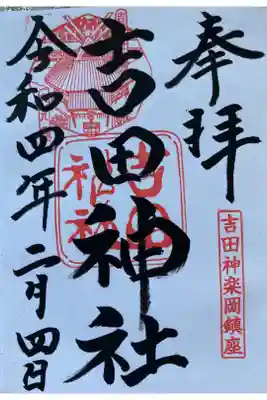 奉拝
吉田神楽岡鎮座
吉田神社
吉田神社
令和四年二月四日